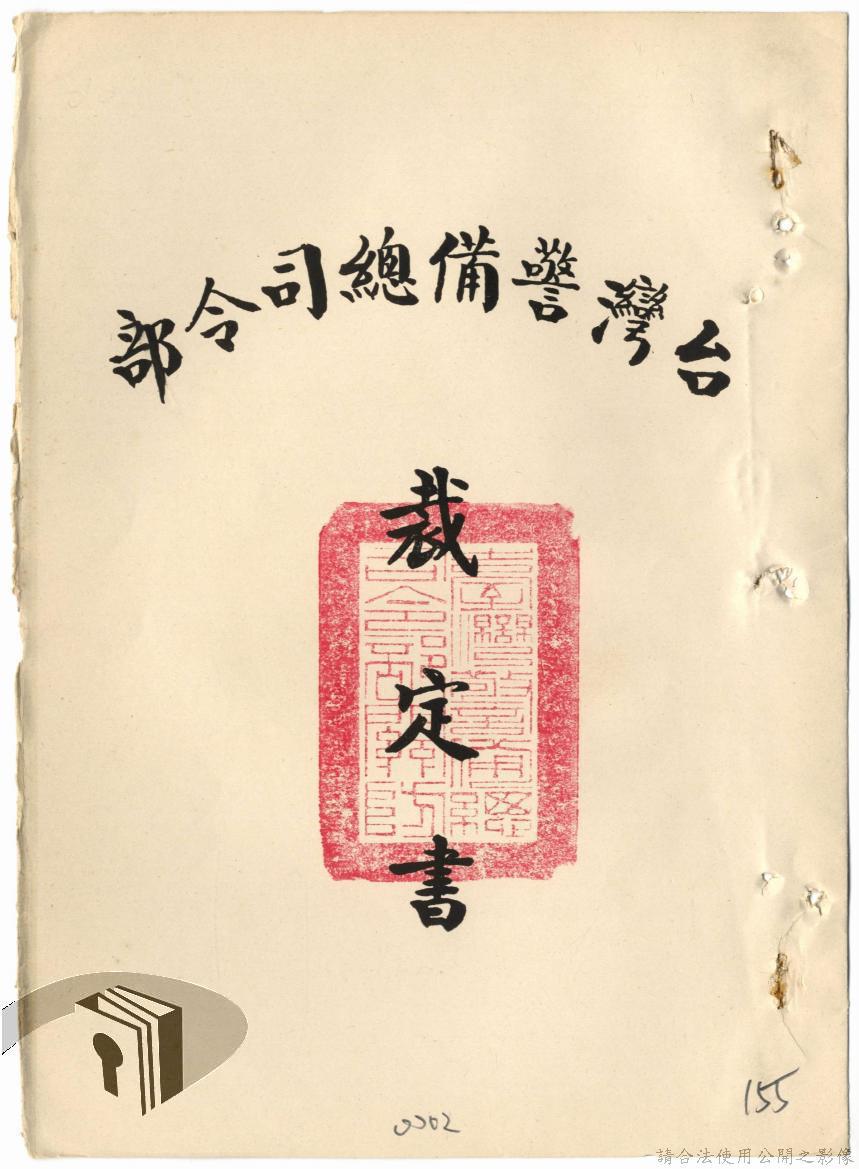 台灣警備總司令部
裁定書
0002
155
請合法使用公開之影像